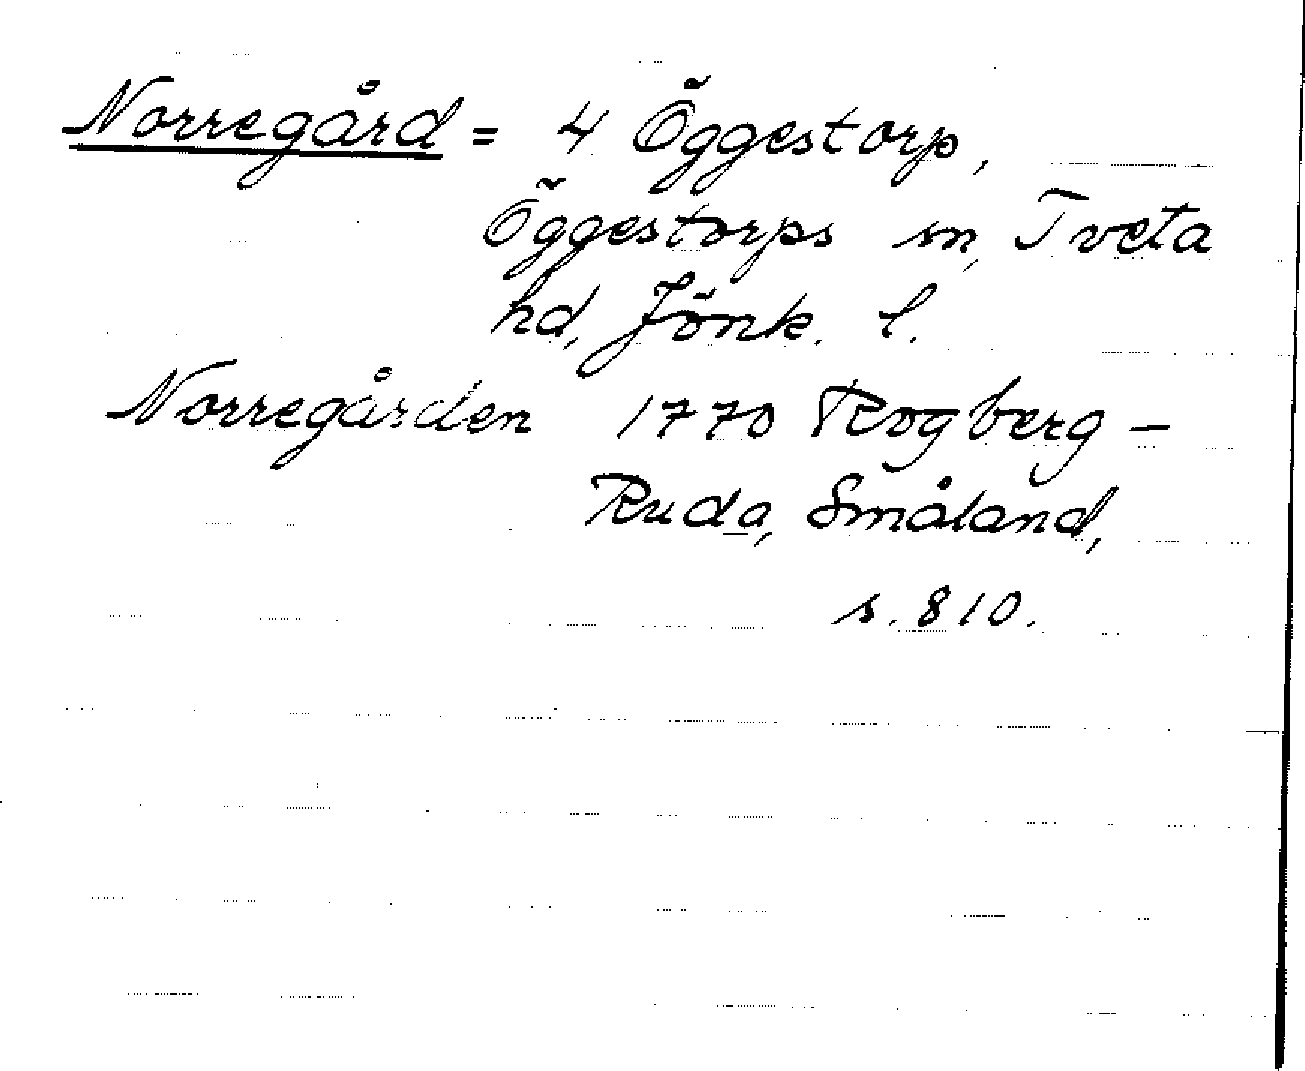 Norregård = 4 Öggestorp,
Öggestorps sn, Tveta
hd, Jönk. l.
Norregården 1770 Rogberg –
Ruda, Småland,
s. 810.